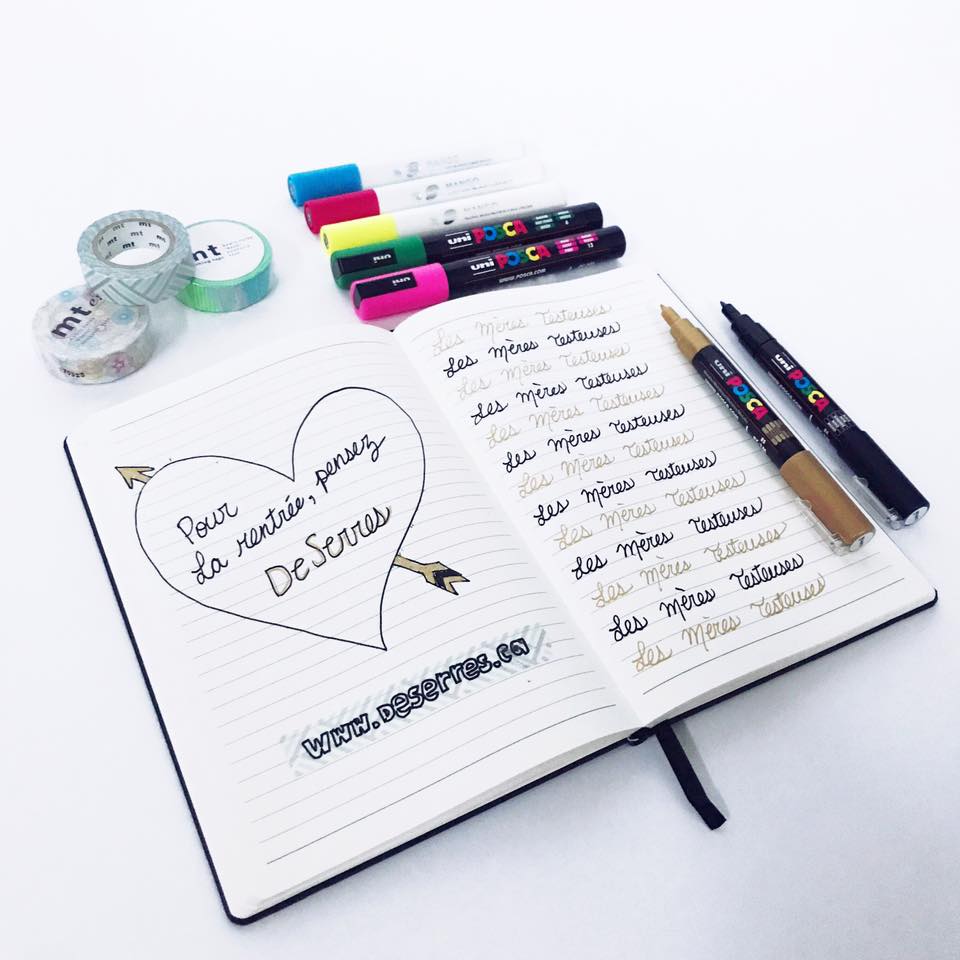 mt mt mt mt
mt
masking tape
mt
MANGO
MANGO
uni POSCA
uni
uni POSCA
WWW.POSCA.COM
uni
Pour
La rentrée, pensez
DeSerres
www.DeSerres.ca
Les Mères Testeuses
Les Mères Testeuses
Les Mères Testeuses
Les Mères Testeuses
Les Mères Testeuses
Les Mères Testeuses
Les Mères Testeuses
Les Mères Testeuses
Les Mères Testeuses
Les Mères Testeuses
Les Mères Testeuses
Les Mères Testeuses
Les Mères Testeuses
uni POSCA
uni POSCA